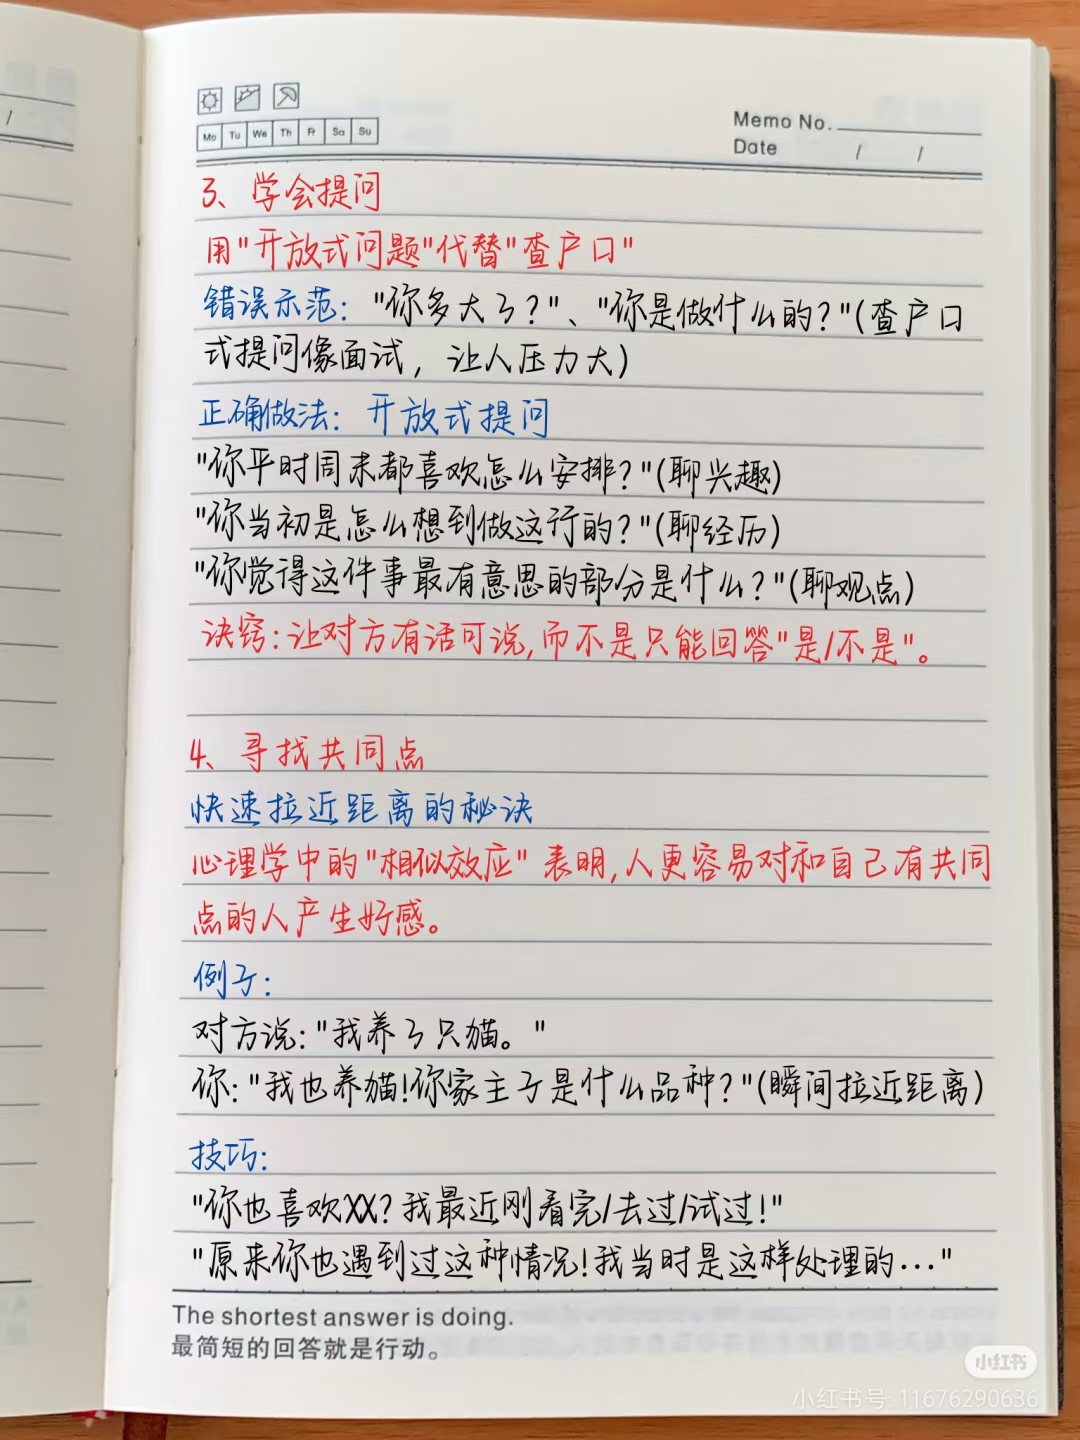 Mo Tu We Th Fr Sa Su
Memo No.
Date / /
/
3、学会提问
用"开放式问题"代替"查户口"
错误示范："你多大了？"、"你是做什么的？"（查户口
式提问像面试，让人压力大）
正确做法：开放式提问
"你平时周末都喜欢怎么安排？"（聊兴趣）
"你当初是怎么想到做这行的？"（聊经历）
"你觉得这件事最有意思的部分是什么？"（聊观点）
诀窍：让对方有话可说，而不是只能回答"是/不是"。
4、寻找共同点
快速拉近距离的秘诀
心理学中的"相似效应"表明，人更容易对和自己有共同
点的人产生好感。
例子：
对方说："我养了只猫。"
你："我也养猫！你家主子是什么品种？"（瞬间拉近距离）
技巧：
"你也喜欢XX？我最近刚看完/去过/试过！"
"原来你也遇到过这种情况！我当时是这样处理的..."
The shortest answer is doing.
最简短的回答就是行动。
小红书
小红书号：11676290636